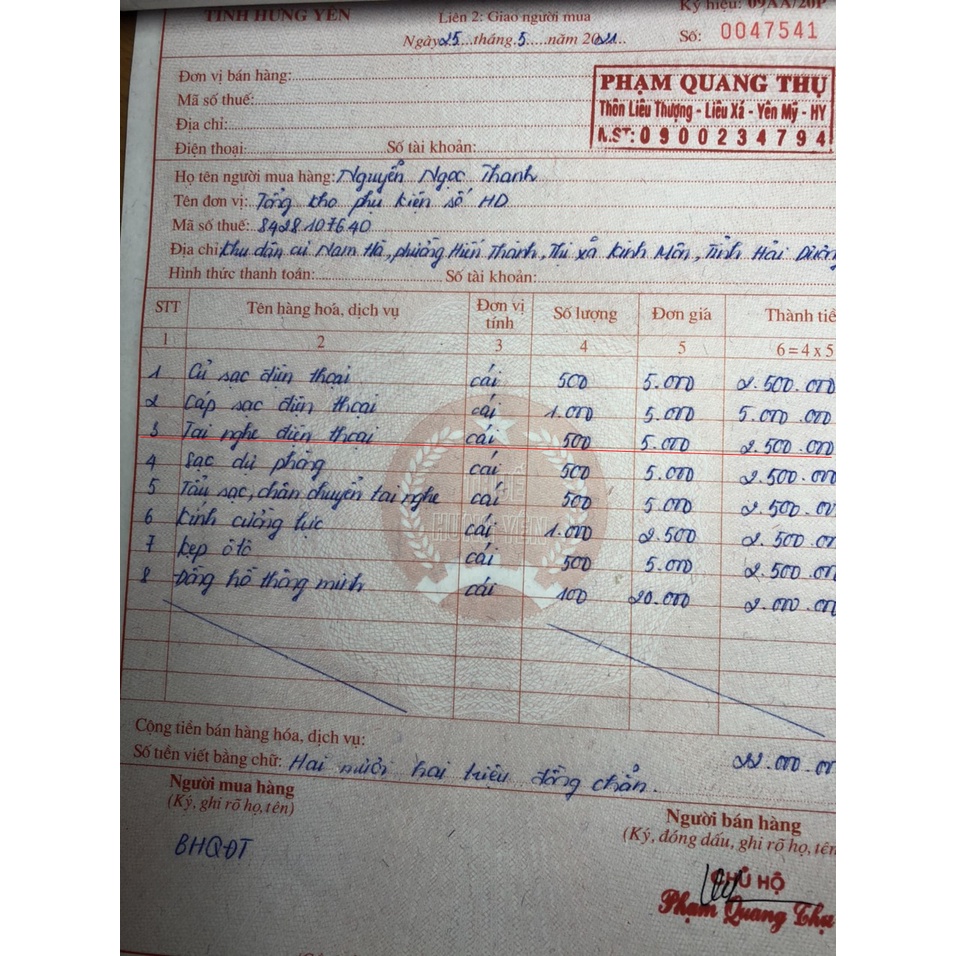 TỈNH HƯNG YÊN
Liên 2: Giao người mua
Ký hiệu: 09AA/20P
Ngày 25 tháng 5 năm 2021
Số: 0047541
Đơn vị bán hàng:
Mã số thuế:
Địa chỉ:
Điện thoại: Số tài khoản:
PHẠM QUANG THỤ
Thôn Liêu Thượng - Liêu Xá - Yên Mỹ - HY
M.ST: 0900234794
Họ tên người mua hàng: Nguyễn Ngọc Thanh
Tên đơn vị: Tổng kho phụ kiện số HD
Mã số thuế: 8428107640
Địa chỉ: Khu dân cư Nam Hà, phường Hiến Thành, Thị xã Kinh Môn, Tỉnh Hải Dương
Hình thức thanh toán: Số tài khoản:
STT Tên hàng hoá, dịch vụ Đơn vị tính Số lượng Đơn giá Thành tiề
1 2 3 4 5 6 = 4 x 5
1 Củ sạc điện thoại cái 500 5.000 2.500.000
2 Cáp sạc điện thoại cái 1.000 5.000 5.000.000
3 Tai nghe điện thoại cái 500 5.000 2.500.000
4 Sạc dự phòng cái 500 5.000 2.500.000
5 Tẩu sạc, chân chuyển tai nghe cái 500 5.000 2.500.00
6 Kính cường lực cái 1.000 2.500 2.500.00
7 Kẹp ôtô cái 500 5.000 2.500.00
8 Đồng hồ thông minh cái 100 20.000 2.000.00
HƯNG YÊN
Cộng tiền bán hàng hóa, dịch vụ: 22.000.00
Số tiền viết bằng chữ: Hai mươi hai triệu đồng chẵn.
Người mua hàng
(Ký, ghi rõ họ, tên)
BHQĐT
Người bán hàng
(Ký, đóng dấu, ghi rõ họ, tên
CHỦ HỘ
Phạm Quang Thụ